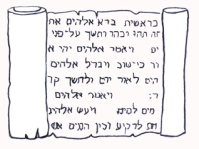 בראשית ברא אלהים את
תהו ובהו וחשך על־פני
ויאמר אלהים יהי א
ור כי־טוב ויבדל אלהים
לאור יום ולחשך קר
ויאמר אלהים
מים למים ויעש אלהים
לרקיע ובין המים